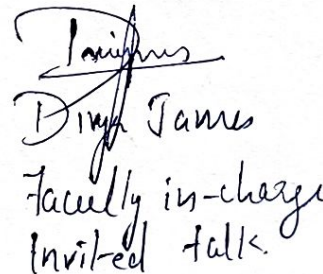 Divya James
Faculty in-charge
Invited talk.